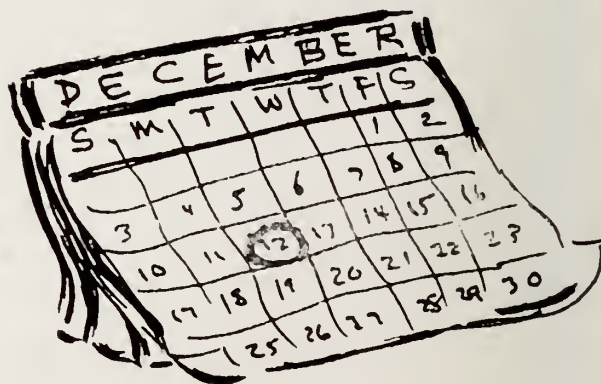 DECEMBER
S M T W T F S
1 2
3 4 5 6 7 8 9
10 11 12 13 14 15 16
17 18 19 20 21 22 23
25 26 27 28 29 30